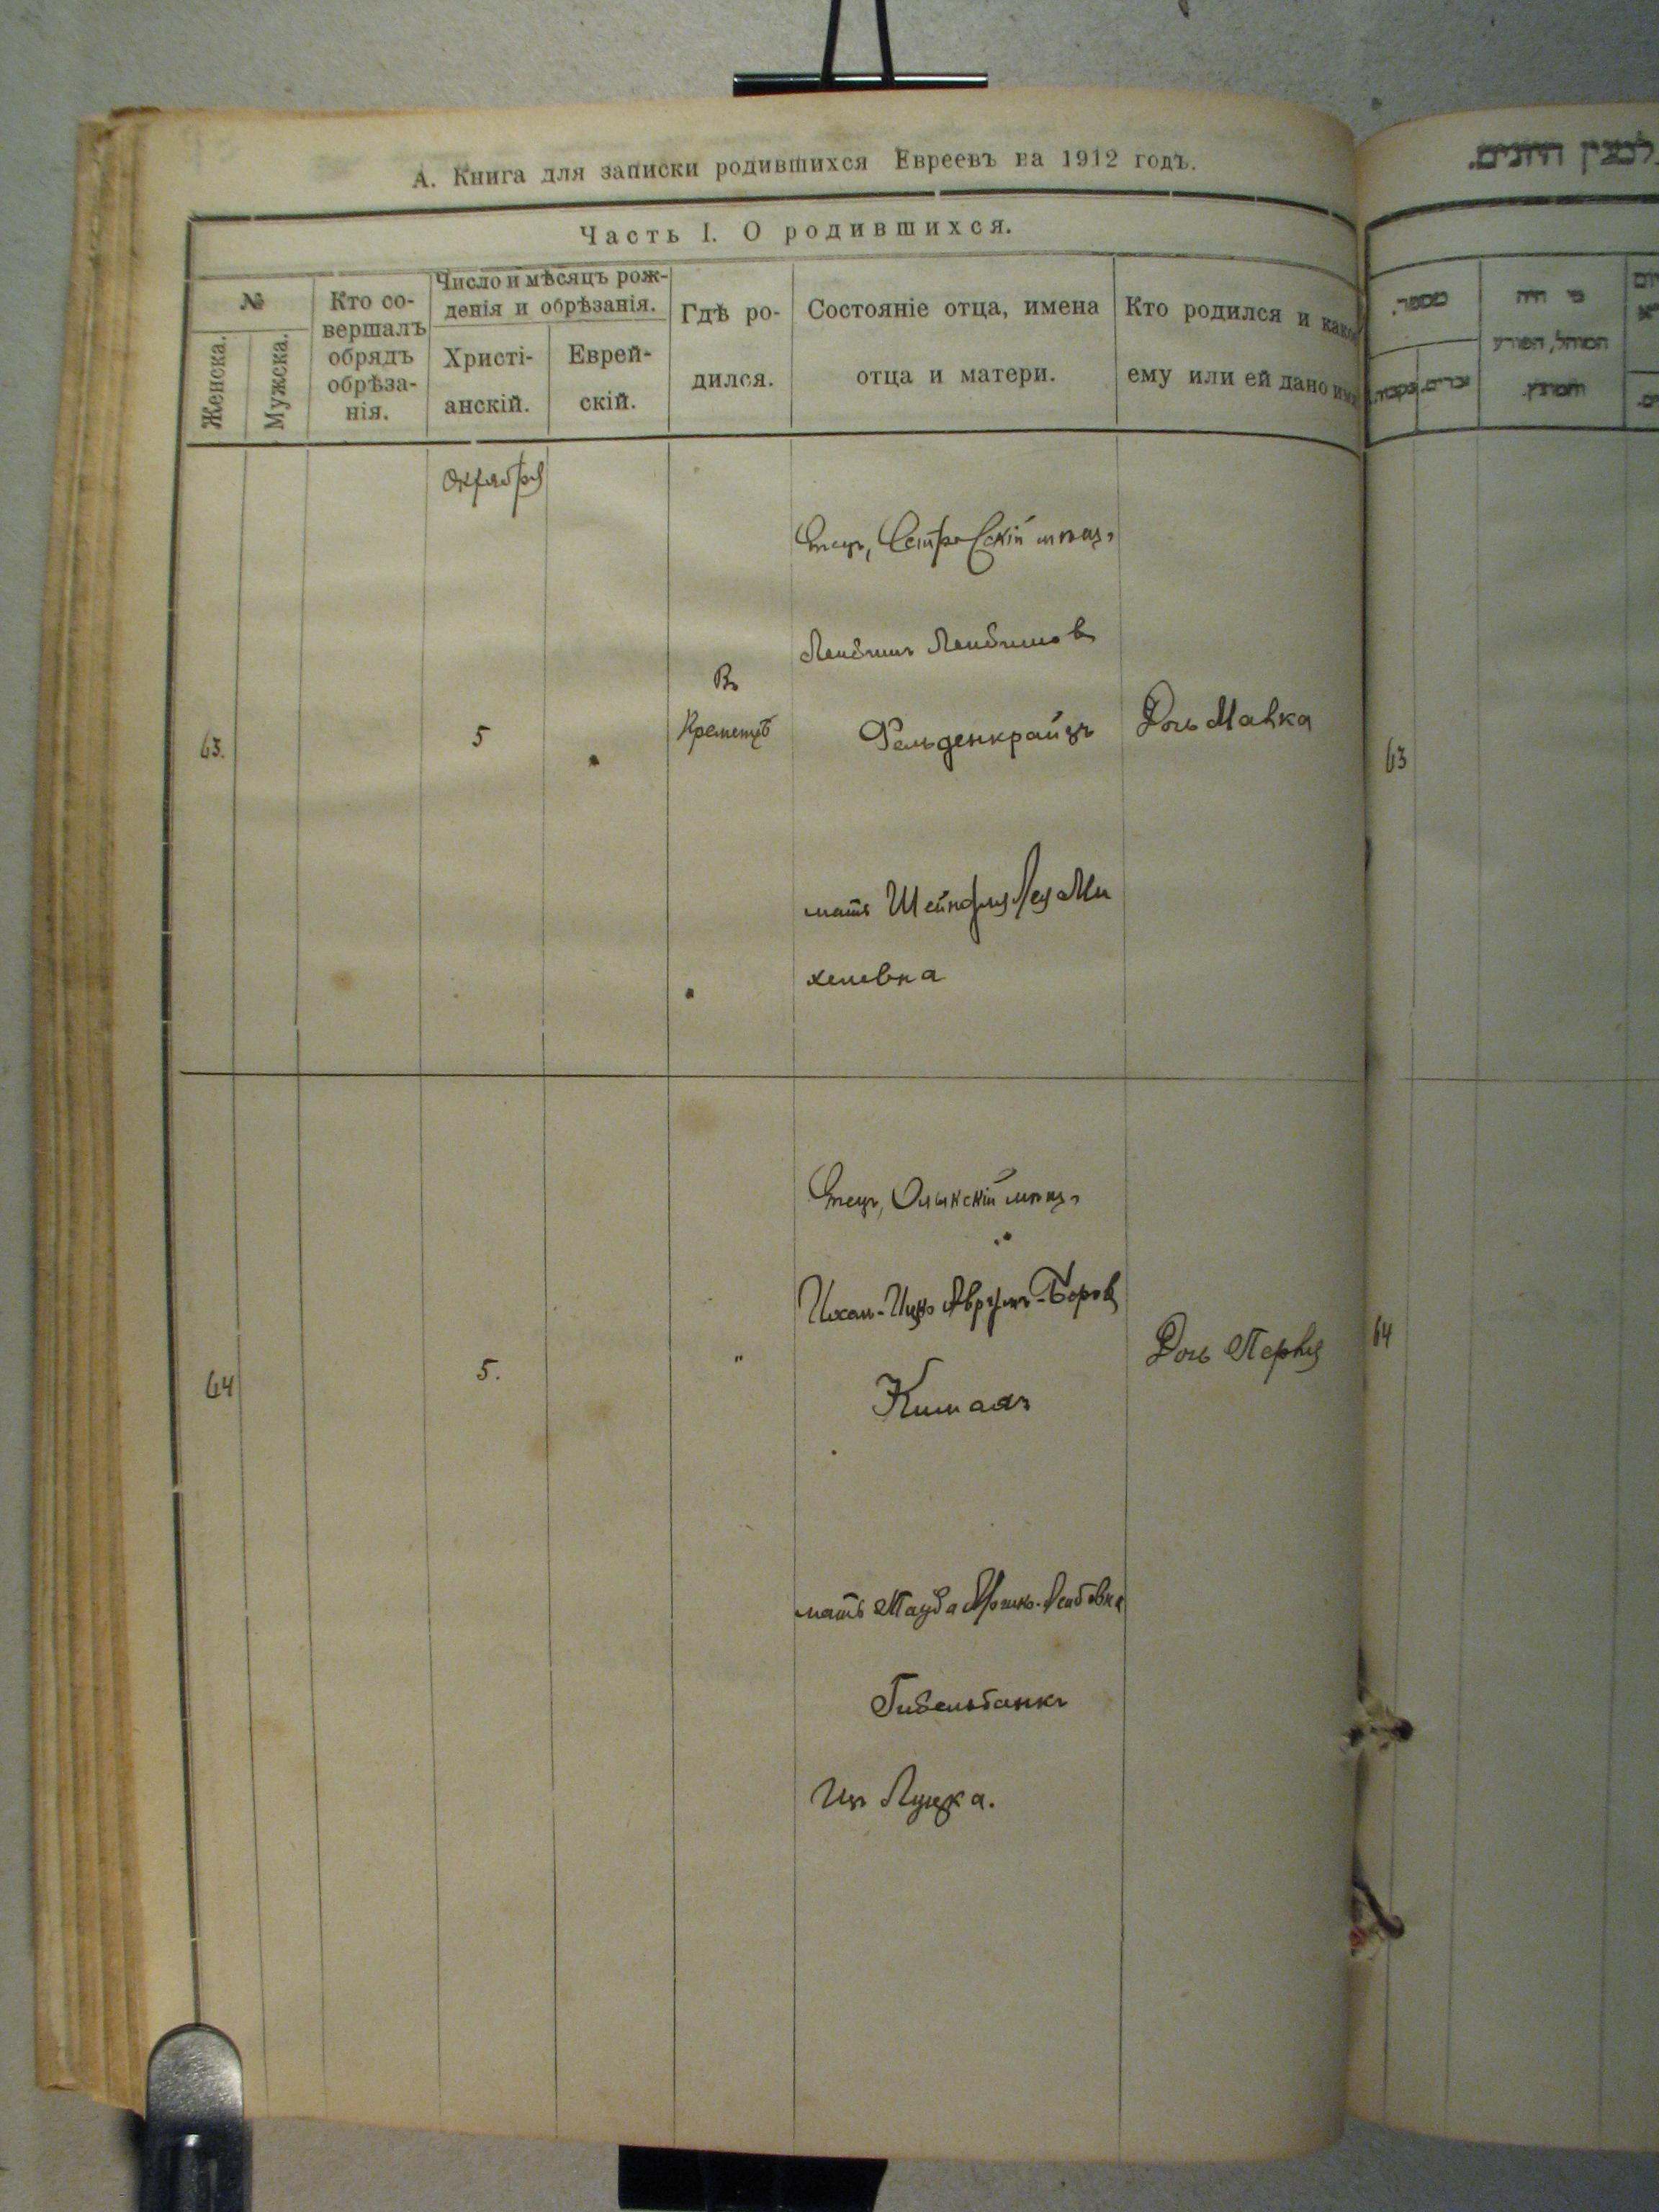 А. Книга для записки родившихся Евреевъ на 1912 годъ.
Часть I. О родившихся.
№
Женска.
Мужска.
Кто со-
вершалъ
обрядъ
обрѣза-
нія.
Число и мѣсяцъ рож-
денія и обрѣзанія.
Христі-
анскій.
Еврей-
скій.
Гдѣ ро-
дился.
Состояніе отца, имена
отца и матери.
Кто родился и какое
ему или ей дано имя
Октября
63.
5
Въ
Кременцѣ
Отецъ, Острожскій мѣщ.
Лейбишъ Лейбишовъ
Фельденкрайзъ
мать Шейндля Лея Ми
хелевна
Дочь Малка
64
5.
"
Отецъ, Олыкскій мѣщ.
Аврумъ-Беровъ
мать Тауба Мошко-Лейбовна
Гибельбанкъ
Изъ Луцка.
Дочь Перля
מספר.
נקבה.
זכרים.
מי היה
המוהל, הפורע
והמוצץ.
63
64